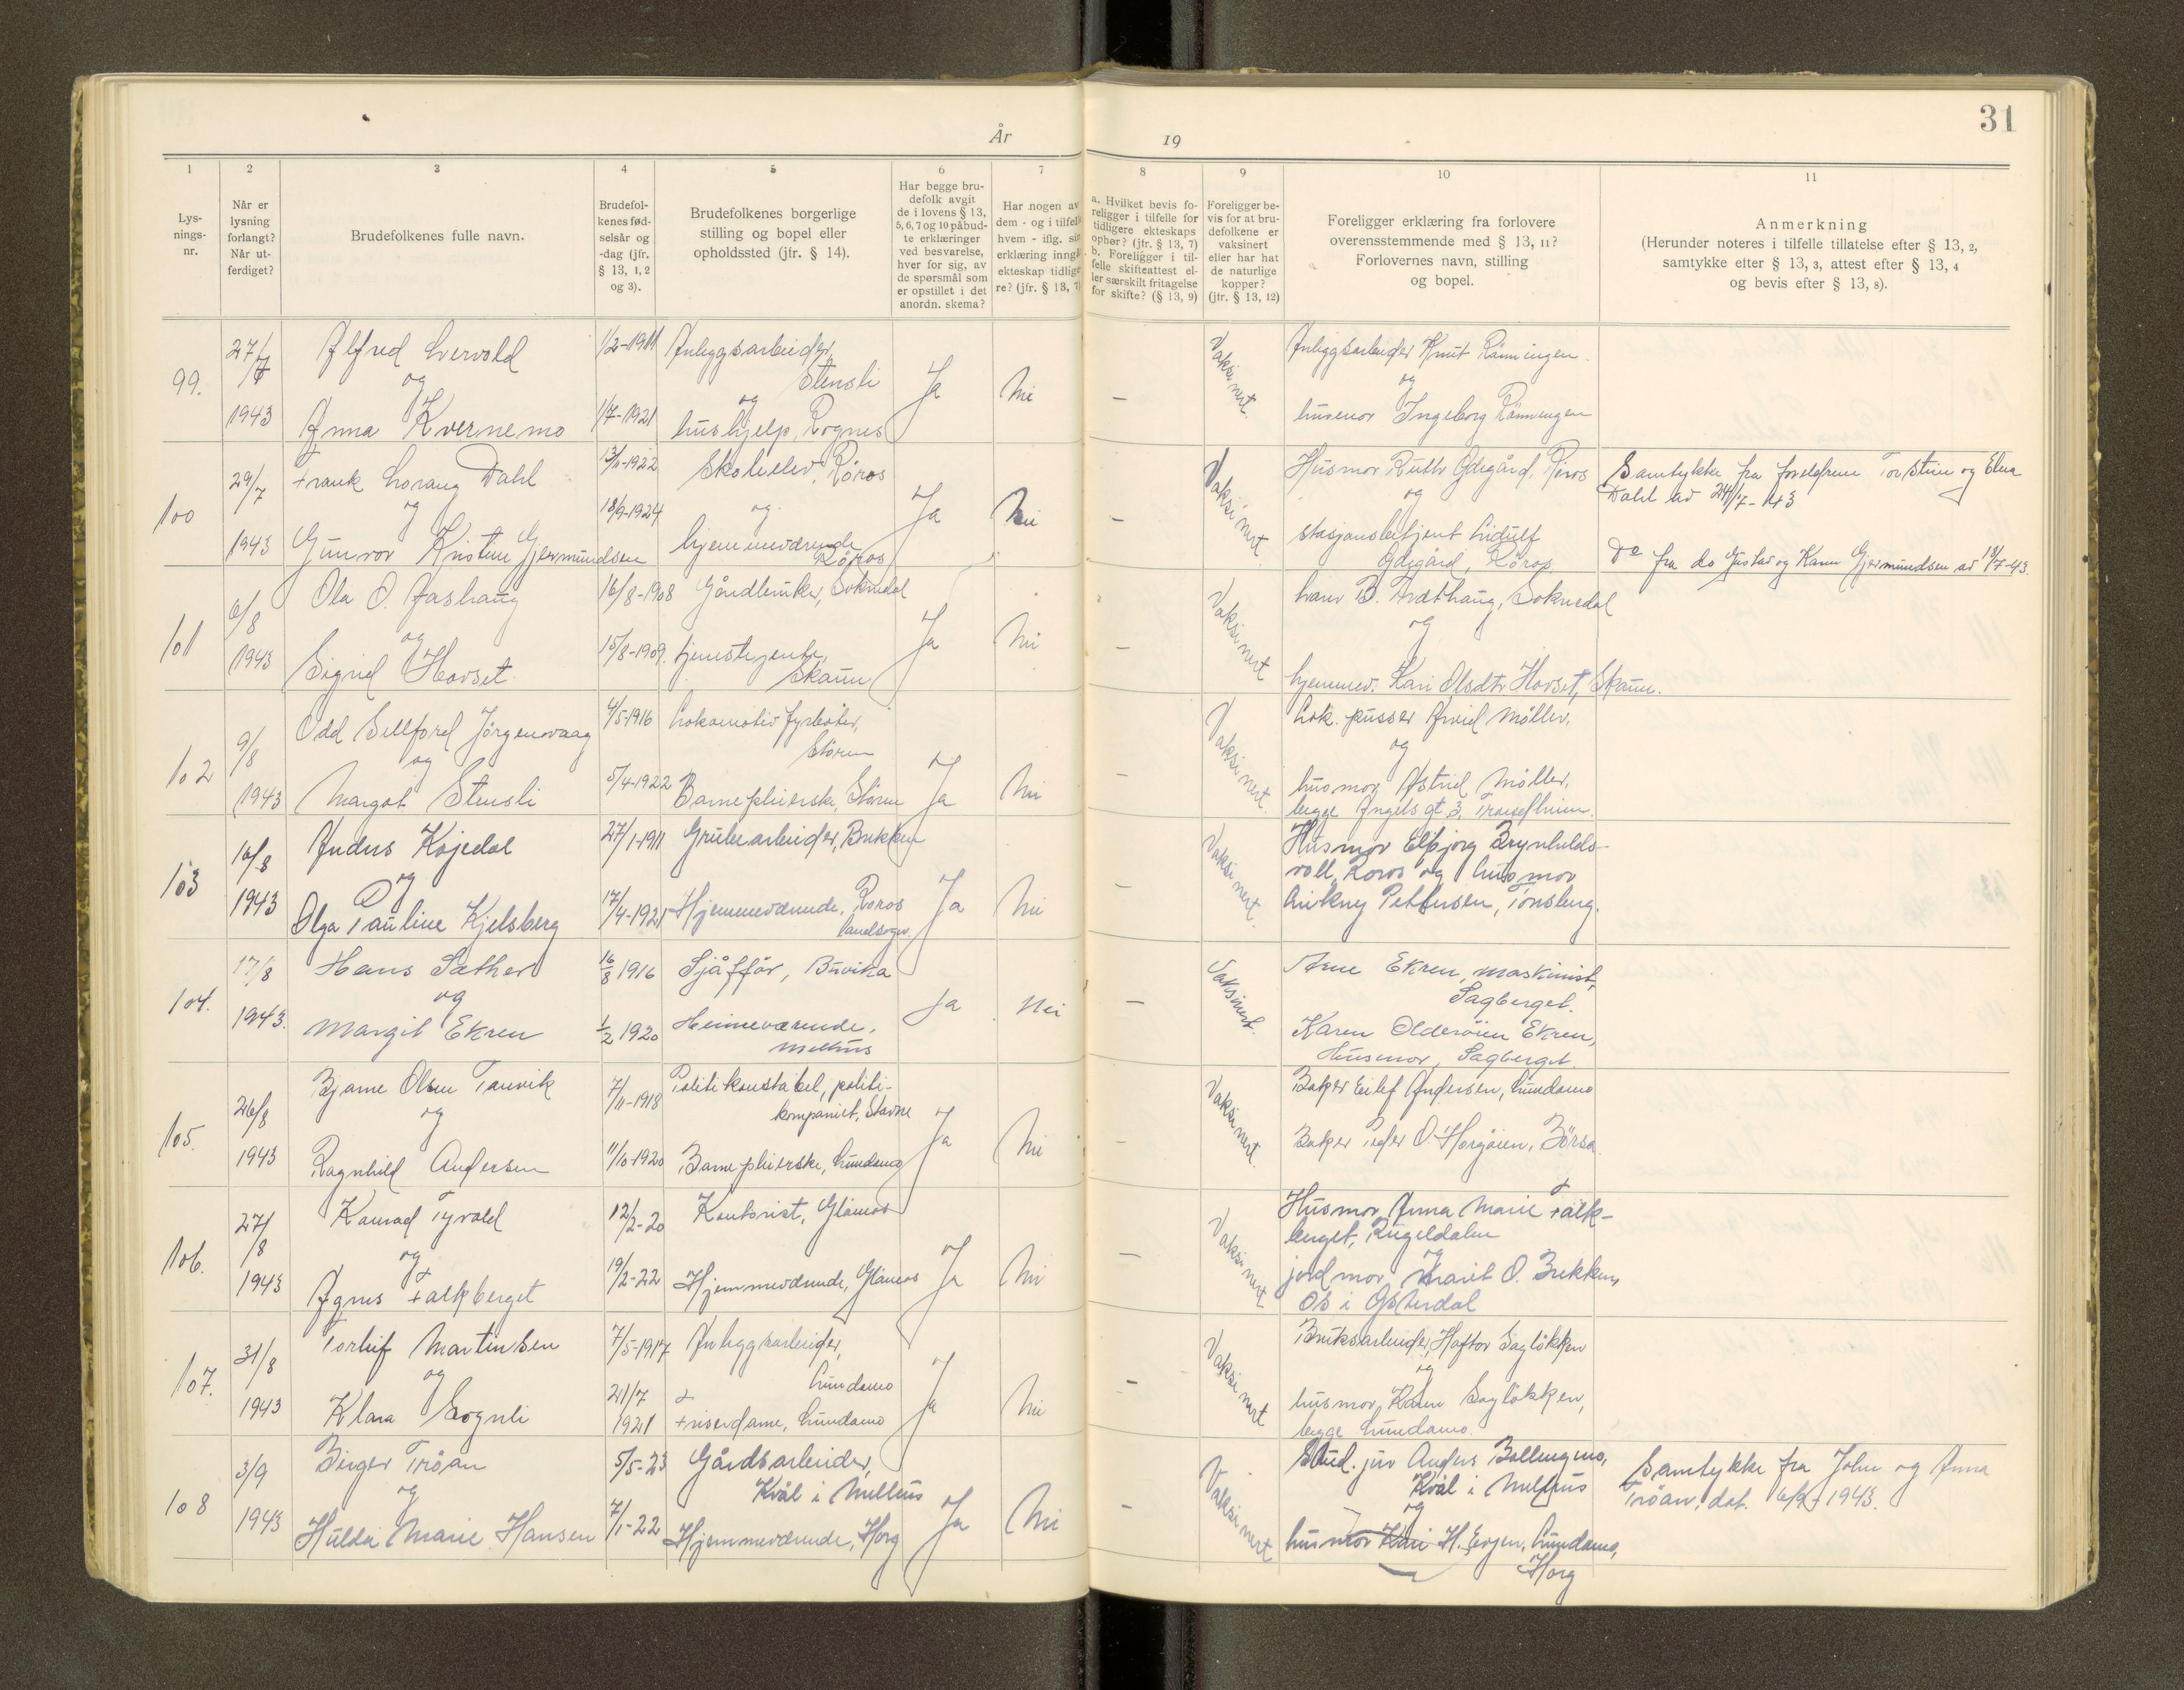 31
År
19
1
2
3
4
5
6
7
8
9
10
11
Lys-
nings-
nr.
Når er
lysning
forlangt?
Når ut-
ferdiget?
Brudefolkenes fulle navn.
Brudefol-
kenes fød-
selsår og
-dag (jfr.
§ 13, 1, 2
og 3).
Brudefolkenes borgerlige
stilling og bopel eller
opholdssted (jfr. § 14).
Har begge bru-
defolk avgit
de i lovens § 13,
5, 6, 7 og 10 påbud-
te erklæringer
ved besvarelse,
hver for sig, av
de spørsmål som
er opstillet i det
anordn. skema?
Har nogen av
dem - og i tilfelle
hvem - iflg. sin
erklæring inngå
ekteskap tidlige
re? (jfr. § 13, 7)
a. Hvilket bevis fo-
religger i tilfelle for
tidligere ekteskaps
ophør? (jfr. § 13, 7)
b. Foreligger i til-
felle skifteattest el-
ler særskilt fritagelse
for skifte? (§ 13, 9)
Foreligger be-
vis for at bru-
defolkene er
vaksinert
eller har hat
de naturlige
kopper?
(jfr. § 13, 12)
Foreligger erklæring fra forlovere
overensstemmende med § 13, 11?
Forlovernes navn, stilling
og bopel.
Anmerkning
(Herunder noteres i tilfelle tillatelse efter § 13, 2,
samtykke efter § 13, 3, attest efter § 13, 4
og bevis efter § 13, 8).
99.
27/7
1943
Alfred
og
Anna Kvernemo
1/2-1911
1/7-1921
Anleggsarbeider,
Stensli
og
hushjelp, Rognes
Ja
Nei
–
Vaksinert
Anleggsarbeider Knut Rønningen
og
husmor Ingeborg Rønningen
100
29/7
1943
Frank Lorang Dahl
og
Gunvor Kristine Gjermundsen
13/11-1922
18/9-1924
Skoleelev, Røros
og
hjemmeværende
Røros
Ja
Nei
–
Vaksinert
Husmor Ruth Ødegård, Røros
og
stasjonsbetjent Lidulf
Ødegård, Røros
Samtykke fra foreldrene Torstein og Elna
Dahl av 24/7-43
Do fra do Gustav og Karen Gjermundsen av 19/7-43.
101
6/8
1943
Ola O. Aashaug
og
Sigrid Hovset
16/8-1908
15/8-1909.
Gårdbruker, Soknedal
tjenestejente,
Skaun
Ja
Nei
–
Vaksinert
Soknedal
og
hjemmev. Kari Olsdtr Hovset, Skaun.
102
9/8
1943
Odd Sellford Jörgensvaag
og
Margot Stensli
4/5-1916
5/4-1922
Lokomotiv fyrbøter,
Støren
Barnepleierske, Støren
Ja
Nei
–
Vaksinert
Lok. pusser Arvid Möller,
og
husmor Astrid Möller,
begge Angels gt 3, Trondheim.
103
16/8
1943
Anders Kojedal
og
Olga Pauline Kjelsberg
27/1-1911
17/4-1921
Grubearbeider, Brekken
Hjemmeværende, Røros
landsogn.
Ja
Nei
–
Vaksinert
Husmor Elbjørg Brynhilds-
voll, Røros og husmor
Pettersen, Tønsberg.
104.
17/8
1943.
Hans Sæther
og
Margit Ekren
16/8 1916
1/2 1920
Sjåffør, Buvika
Heimeværende,
Melhus
Ja
Nei
–
Vaksinert.
Arne Ekren, maskinist,
Sagberget.
Karen Olderøien Ekren,
Husmor, Sagberget
105.
26/8
1943
Bjarne Olsen Tanvik
og
Ragnhild Andersen
7/11-1918
11/10-1920
Politikonstabel, politi-
kompaniet, Stavne
Barnepleierske, Lundamo
Ja
Nei
–
Vaksinert
Baker Eilef Andersen, Lundamo
Baker Peder O. Horgøien, Børsa.
106.
27/8
1943
Konrad Tyvold
og
Agnes Falkberget
12/2-20
19/2-22
Kontorist, Glåmos
Hjemmeværende, Glåmos
Ja
Nei
–
Vaksinert
Husmor Anna Marie Falk-
berget, Rugeldalen
og
jordmor Marit O. Brekken,
Os i Østerdal
107.
31/8
1943
Torleif Martinsen
og
Klara Sognli
7/5-1917
21/7
1921
Anleggsarbeider,
Lundamo
Friserdame, Lundamo
Ja
Nei
–
Vaksinert
Bruksarbeider, Haftor Sagløkken
og
husmor, Karen Sagløkken,
begge Lundamo.
108
3/9
1943
Birger Tröan
og
Hulda Marie Hansen
5/5-23
7/1-22
Gårdsarbeider,
Kvål i Melhus
Hjemmeværende, Horg
Ja
Nei
–
Vaksinert
Stud. jur Anders Bollingmo,
Kvål i Melhus
og
husmor Kari H. Evjen, Lundamo,
Horg
Samtykke fra John og Anna
Tröan, dat. 6/9-1943.